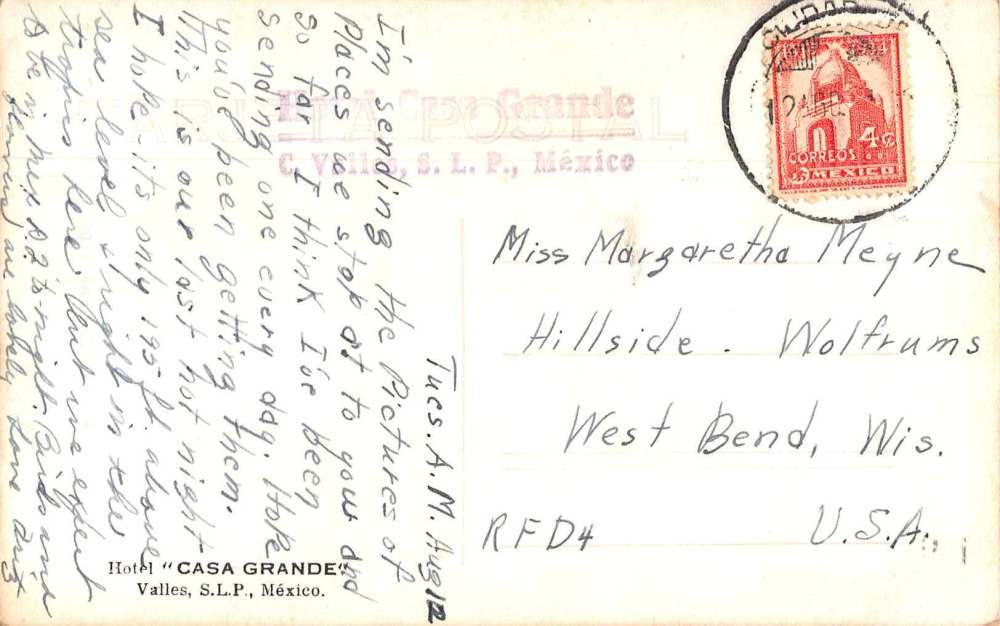 Tues. A.M. Aug 12
I'm sending the Pictures of
Places we stop at to you and
So far I think I've been
Sending one every day. Hope
you've been getting them.
This is our last hot night
I hope - it's only 195 ft. above
sea level & right in the
tropics here but we expect
to be in Mex D.F. tonight. Birds and
are lovely Love
Hotel Casa Grande
C. Valles, S. L. P., México
TARJETA POSTAL
CORREOS
4¢
MEXICO
Miss Margaretha Meyne
Hillside. Wolfrums
West Bend, Wis.
RFD4 U.S.A.
Hotel "CASA GRANDE"
Valles, S.L.P., México.